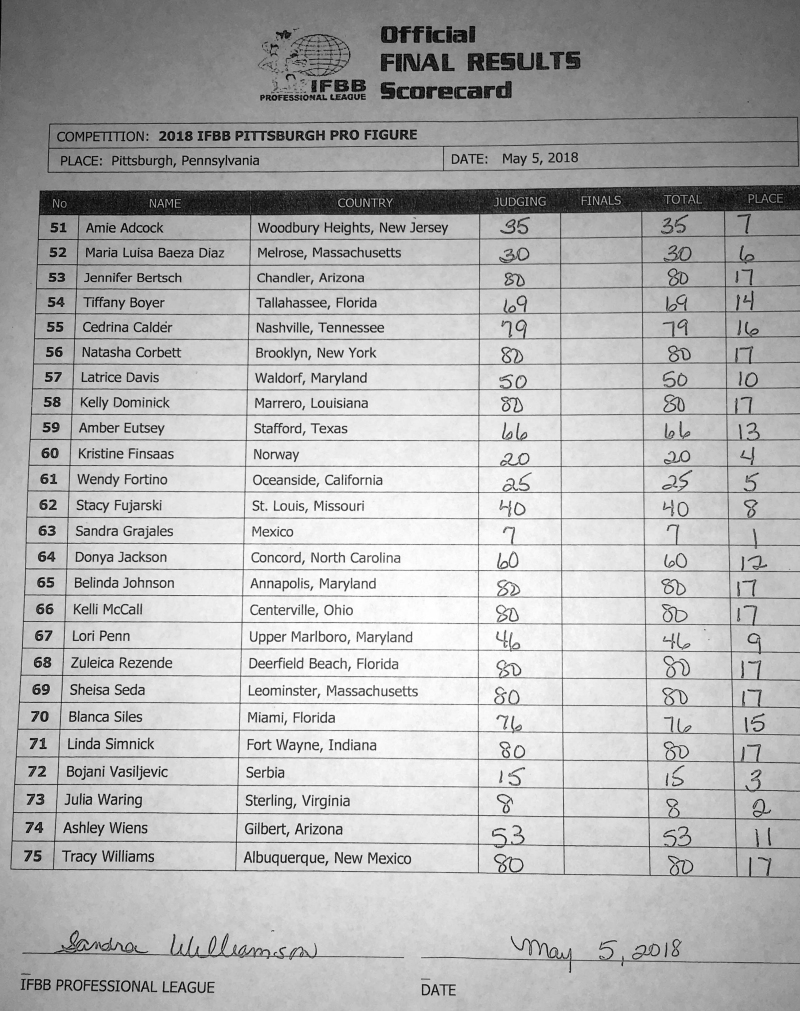 Official
FINAL RESULTS
Scorecard
IFBB
PROFESSIONAL LEAGUE
COMPETITION: 2018 IFBB PITTSBURGH PRO FIGURE
PLACE: Pittsburgh, Pennsylvania DATE: May 5, 2018
No NAME COUNTRY JUDGING FINALS TOTAL PLACE
51 Amie Adcock Woodbury Heights, New Jersey 35 35 7
52 Maria Luisa Baeza Diaz Melrose, Massachusetts 30 30 6
53 Jennifer Bertsch Chandler, Arizona 80 80 17
54 Tiffany Boyer Tallahassee, Florida 69 69 14
55 Cedrina Calder Nashville, Tennessee 79 79 16
56 Natasha Corbett Brooklyn, New York 80 80 17
57 Latrice Davis Waldorf, Maryland 50 50 10
58 Kelly Dominick Marrero, Louisiana 80 80 17
59 Amber Eutsey Stafford, Texas 66 66 13
60 Kristine Finsaas Norway 20 20 4
61 Wendy Fortino Oceanside, California 25 25 5
62 Stacy Fujarski St. Louis, Missouri 40 40 8
63 Sandra Grajales Mexico 7 7 1
64 Donya Jackson Concord, North Carolina 60 60 12
65 Belinda Johnson Annapolis, Maryland 80 80 17
66 Kelli McCall Centerville, Ohio 80 80 17
67 Lori Penn Upper Marlboro, Maryland 46 46 9
68 Zuleica Rezende Deerfield Beach, Florida 80 80 17
69 Sheisa Seda Leominster, Massachusetts 80 80 17
70 Blanca Siles Miami, Florida 76 76 15
71 Linda Simnick Fort Wayne, Indiana 80 80 17
72 Bojani Vasiljevic Serbia 15 15 3
73 Julia Waring Sterling, Virginia 8 8 2
74 Ashley Wiens Gilbert, Arizona 53 53 11
75 Tracy Williams Albuquerque, New Mexico 80 80 17
Sandra Williamson May 5, 2018
IFBB PROFESSIONAL LEAGUE DATE